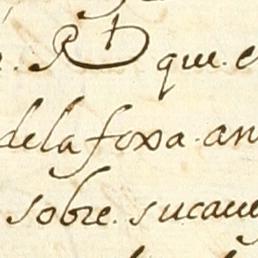 que. e
de la foxa. an
sobre. su caue